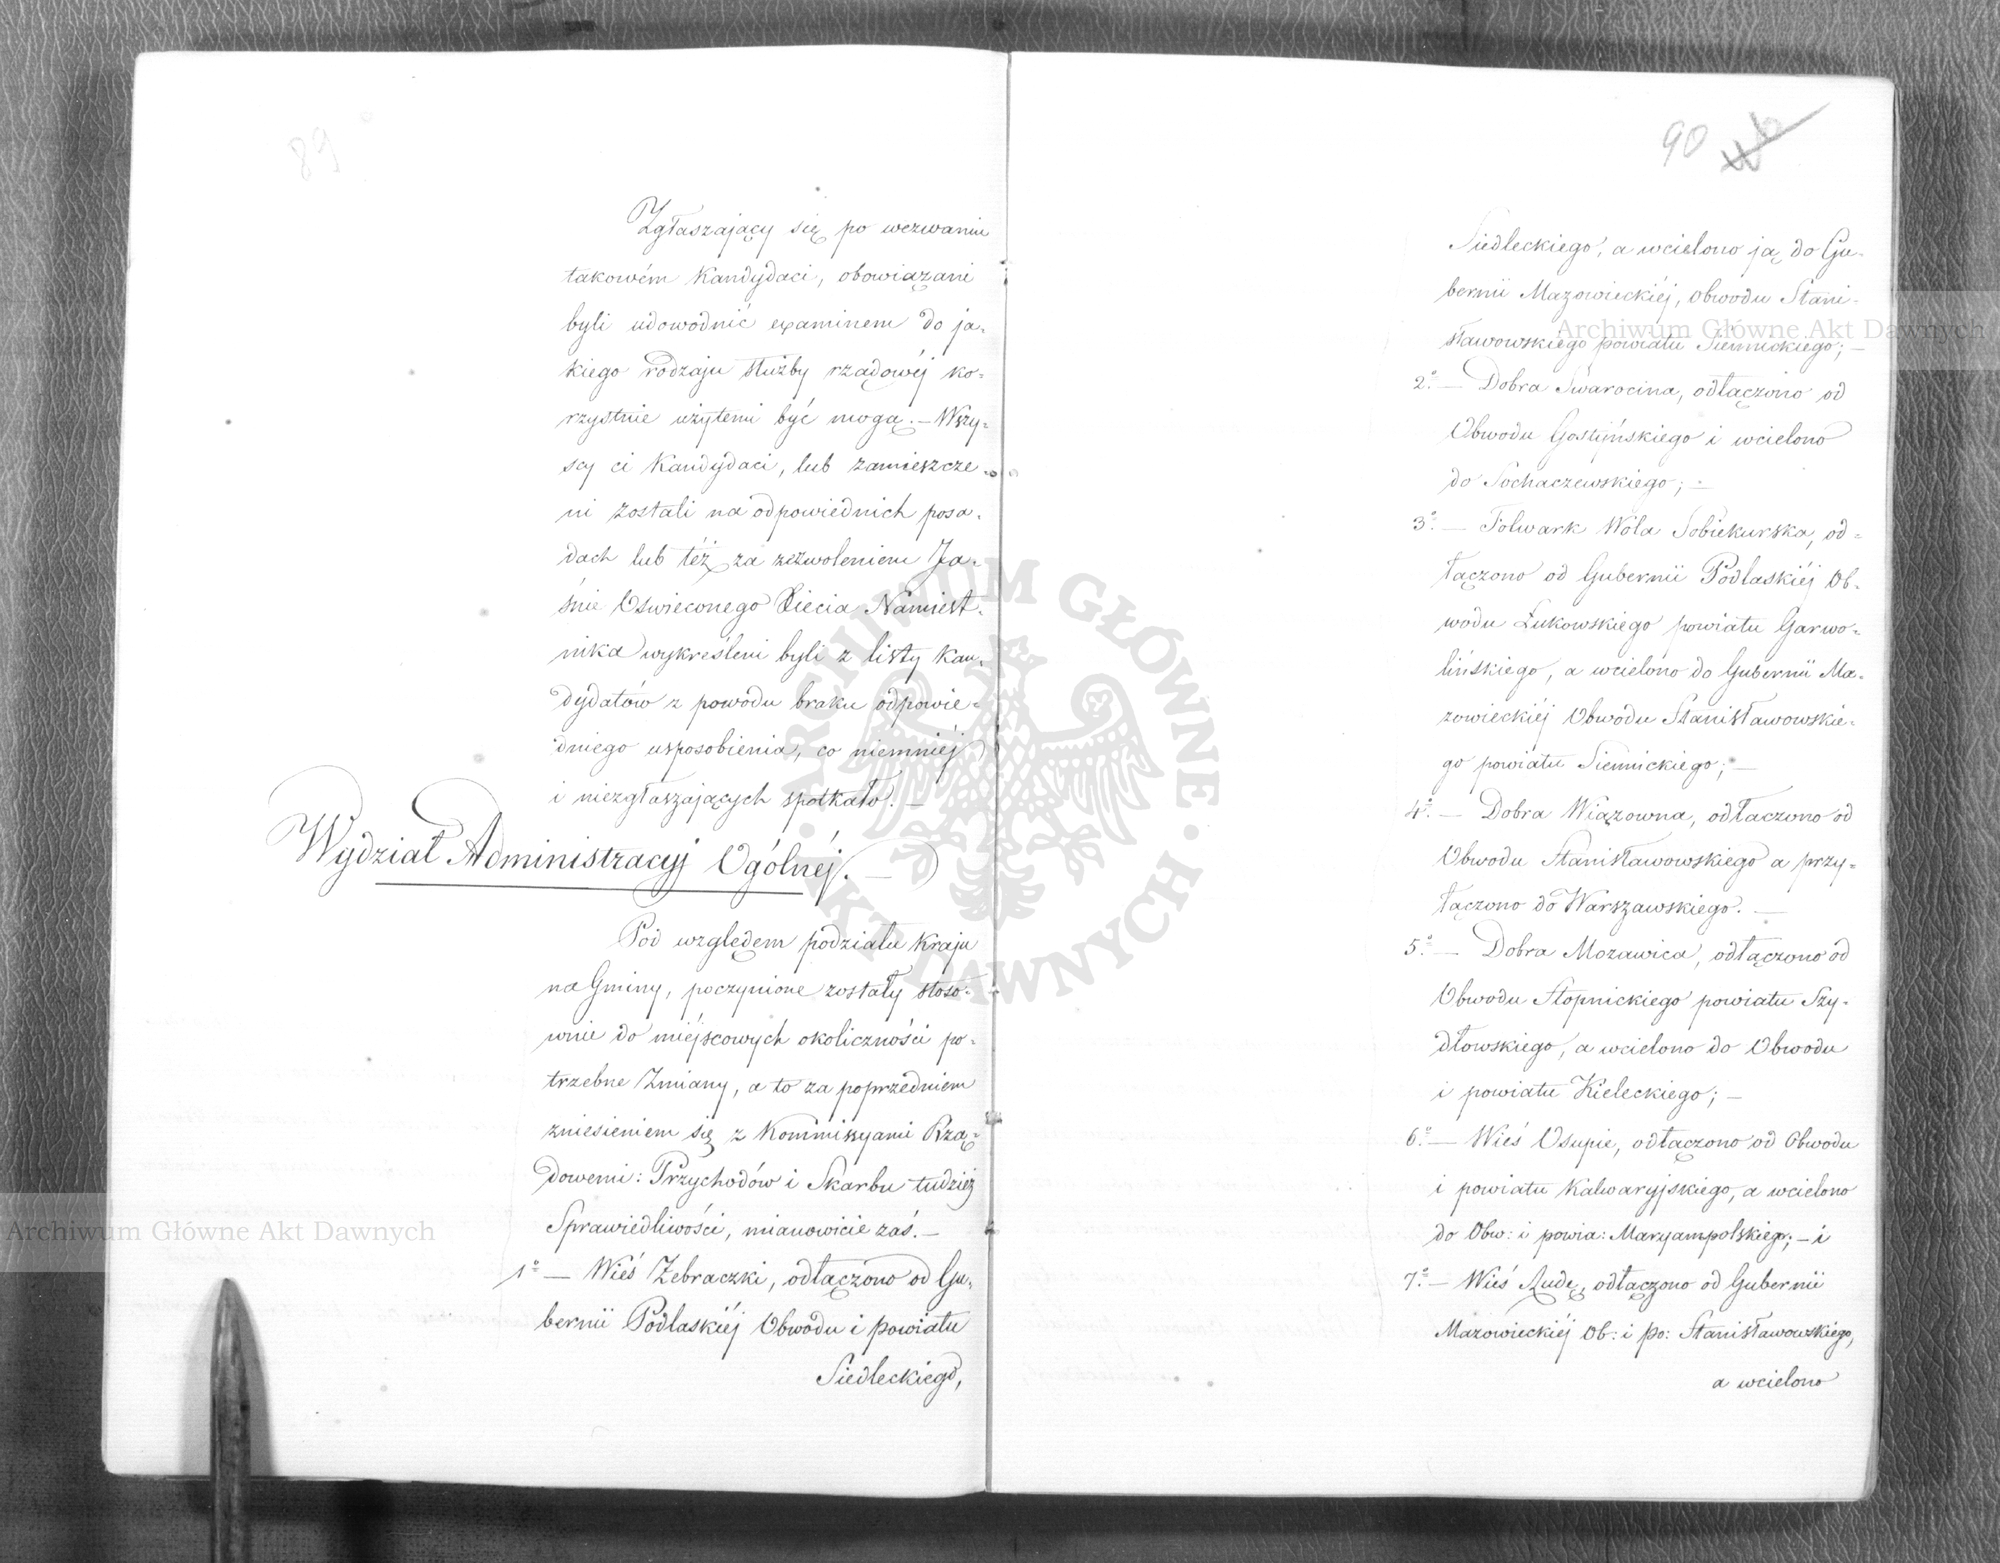 89
Zgłaszający się po wezwaniu
takowém Kandydaci, obowiązani
byli udowodnić examinem do ja-
kiego rodzaju służby rządowéj ko-
rzystnie użytemi być mogą. – Wszy-
scy ci Kandydaci, lub zamieszcze-
ni zostali na odpowiednich posa-
dach lub téż za zezwoleniem Ja-
śnie Oświeconego Xiecia Namiest-
nika wykreśleni byli z listy Kan-
dydatów z powodu braku odpowie-
dniego usposobienia, co niemniéj
i niezgłaszających spotkało. –
Wydział Administracyj Ogólnéj. –
Pod względem podziału Kraju
na Gminy, poczynione zostały stoso-
wnie do miéjscowych okoliczności po-
trzebne Zmiany, a to za poprzedniem
zniesieniem się z Kommissyami Rzą-
dowemi: Przychodów i Skarbu tudzież
Sprawiedliwości, mianowicie zaś. –
1º – Wieś Żebraczki, odłączono od Gu-
bernii Podlaskiéj Obwodu i powiatu
Siedleckiego,
90
Siedleckiego, a wcielono ją do Gu-
bernii Mazowieckiéj, Obwodu Stani-
sławowskiego powiatu Siennickiego; –
2º – Dobra Swarocina, odłączono od
Obwodu Gostyńskiego i wcielono
do Sochaczewskiego; –
3º – Folwark Wola Sobiekurska, od-
łączono od Gubernii Podlaskiéj Ob-
wodu Łukowskiego powiatu Garwo-
lińskiego, a wcielono do Gubernii Ma-
zowieckiéj Obwodu Stanisławowskie-
go powiatu Siennickiego; –
4º – Dobra Wiązowna, odłaczono od
Obwodu Stanisławowskiego a przy-
łączono do Warszawskiego. –
5º – Dobra Mozawica, odłączono od
Obwodu Stopnickiego powiatu Szy-
dłowskiego, a wcielono do Obwodu
i powiatu Kieleckiego; –
6º – Wieś Osupie, odłączono od Obwodu
i powiatu Kalwaryjskiego, a wcielono
do Obw: i powia: Maryampolskiego; – i
7º – Wieś Rudę, odłączono od Gubernii
Mazowieckiéj Ob: i po: Stanisławowskiego,
a wcielono
Archiwum Główne Akt Dawnych
Archiwum Główne Akt Dawnych
ARCHIWUM GŁÓWNE · AKT DAWNYCH ·